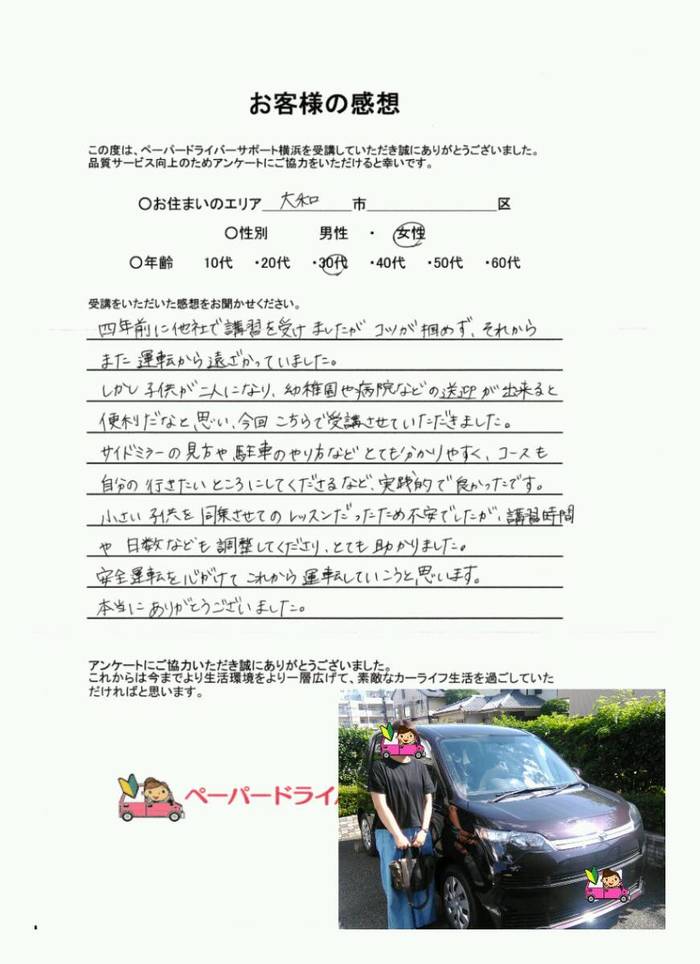 お客様の感想
この度は、ペーパードライバーサポート横浜を受講していただき誠にありがとうございました。
品質サービス向上のためアンケートにご協力をいただけると幸いです。
〇お住まいのエリア 大和 市 区
〇性別 男性 ・ 女性
〇年齢 10代 ・20代 ・30代 ・40代 ・50代 ・60代
受講をいただいた感想をお聞かせください。
四年前に他社で講習を受けましたが コツが掴めず、それから
また運転から遠ざかっていました。
しかし子供が二人になり、幼稚園や病院などの送迎が出来ると
便利だなと思い、今回こちらで受講させていただきました。
サイドミラーの見方や駐車のやり方などとても分かりやすく、コースも
自分の行きたいところにしてくださるなど、実践的で良かったです。
小さい子供を同乗させてのレッスンだったため不安でしたが、講習時間
や日数なども調整してくださり、とても助かりました。
安全運転を心がけてこれから運転していこうと思います。
本当にありがとうございました。
アンケートにご協力いただき誠にありがとうございました。
これからは今までより生活環境をより一層広げて、素敵なカーライフ生活を過ごしていた
だければと思います。
ペーパードライバ